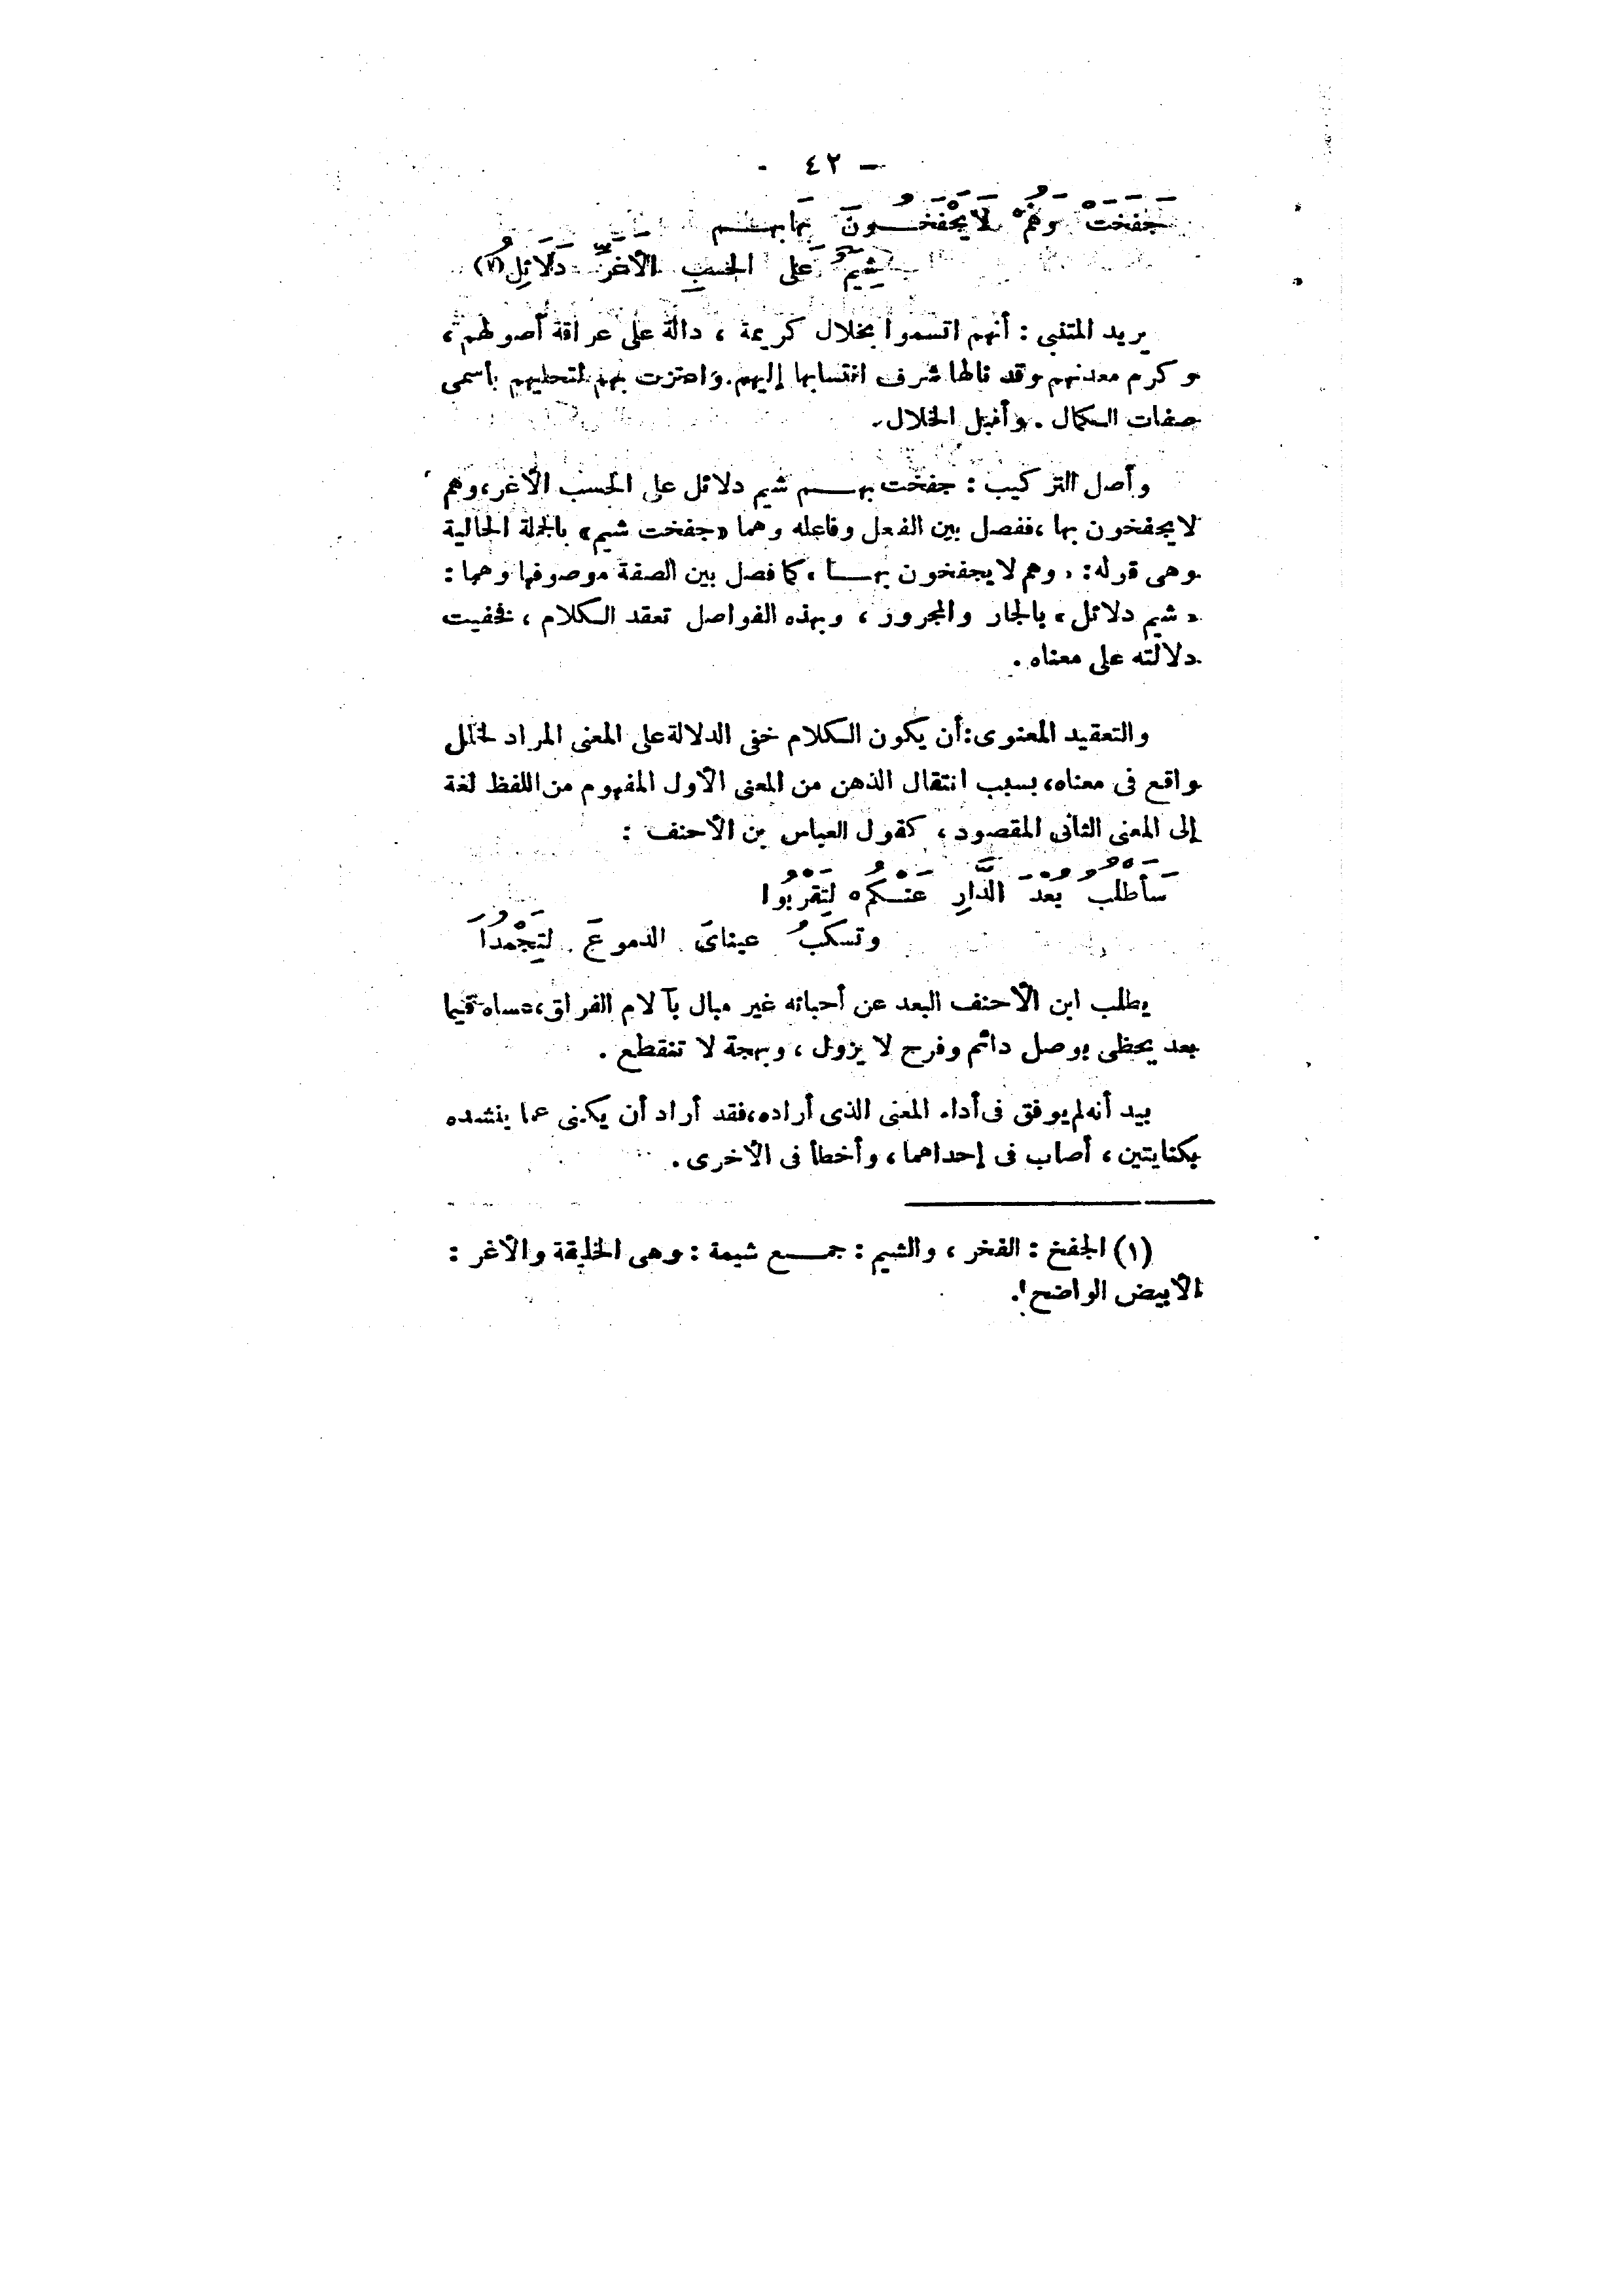 — ٤٢ -
جَفَخَتْ وَهُمْ لَا يَجْفَخُونَ بِهَا بِهِم
شِيَمٌ عَلَى الحَسَبِ الأَغَرِّ دَلَائِلُ (١)
يريد المتنبي : أنهم اتسموا بخلال كريمة ، دالة على عراقة أصولهم ،
وكرم معدنهم وقد نالها شرف انتسابها إليهم . واعتزت بهم لتحليهم بأسمى
صفات الكمال . وأنبل الخلال .
وأصل التركيب : جفخت بهم شيم دلائل على الحسب الأغر ، وهم
لا يجفخون بها ، ففصل بين الفعل وفاعله وهما «جفخت شيم» بالجملة الحالية
وهى قوله : . وهم لا يجفخون بها ، كما فصل بين الصفة موصوفها وهما :
« شيم دلائل » بالجار والمجرور ، وبهذه الفواصل تعقد الكلام ، فخفيت
دلالته على معناه .
والتعقيد المعنوى : أن يكون الكلام خفى الدلالة على المعنى المراد لخلل
واقع فى معناه ، بسبب انتقال الذهن من المعنى الأول المفهوم من اللفظ لغة
إلى المعنى الثانى المقصود ، كقول العباس بن الأحنف :
سَأَطْلُبُ بُعْدَ الدَّارِ عَنْكُمْ لِتَقْرَبُوا
وتَسكُبُ عيناىَ الدموعَ لِتَجْمُدَا
يطلب ابن الأحنف البعد عن أحبائه غير مبال بآلام الفراق ، عساه فيما
بعد يحظى بوصل دائم وفرح لا يزول ، وبهجة لا تنقطع .
بيد أنه لم يوفق فى أداء المعنى الذى أراده ، فقد أراد أن يكنى عما ينشده
بكنايتين ، أصاب فى إحداهما ، وأخطأ فى الأخرى .
(١) الجفخ : الفخر ، والشيم : جمع شيمة : وهى الخليقة والأغر :
الأبيض الواضح .